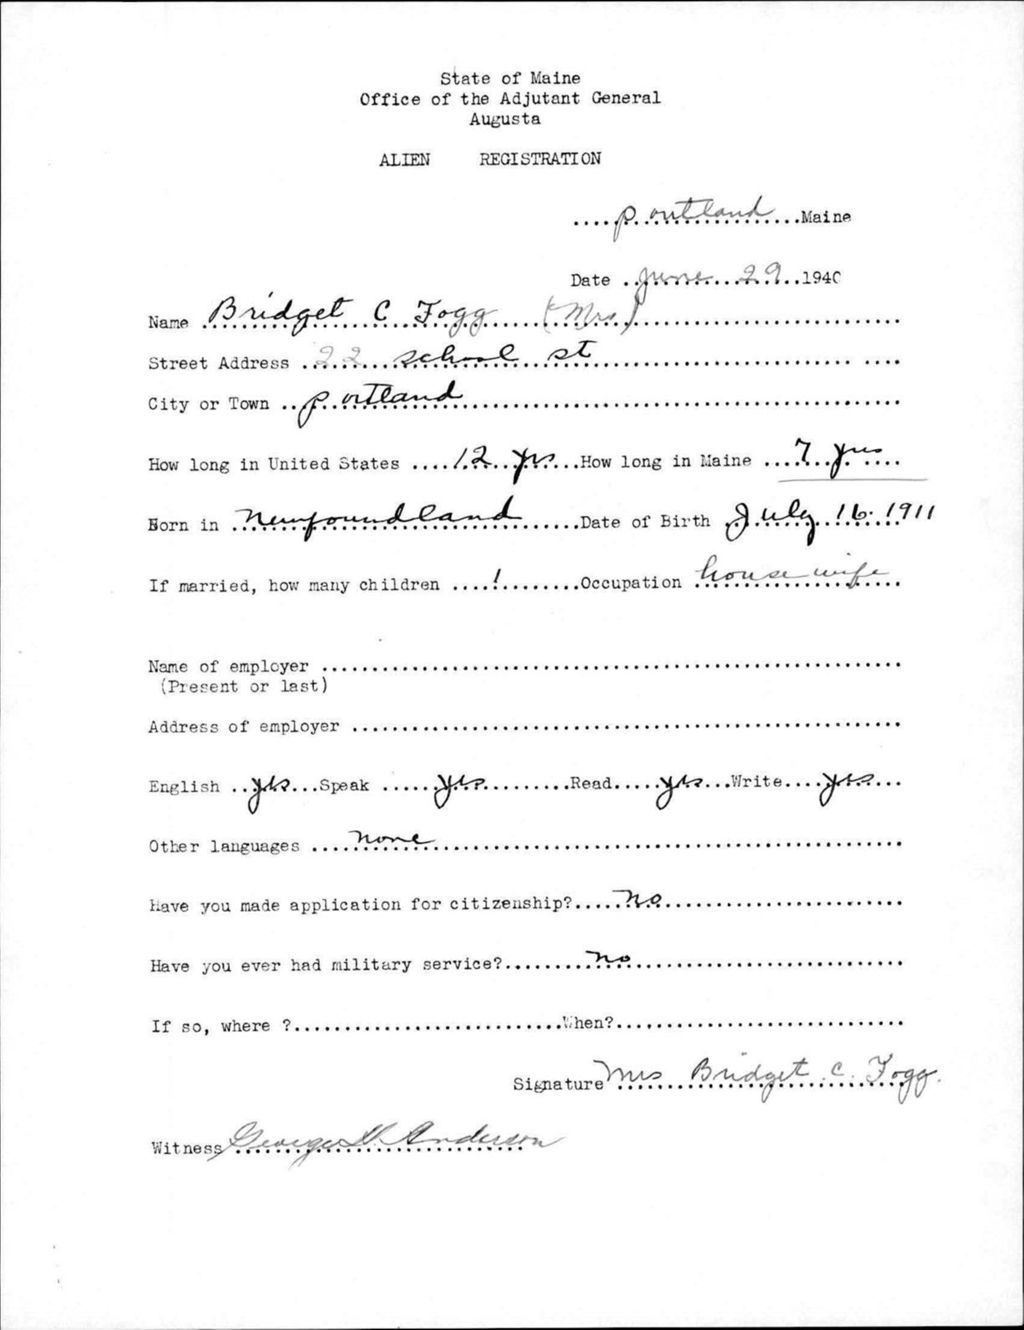 State of Maine
Office of the Adjutant General
Augusta
ALIEN REGISTRATION
....Portland....Maine
Date ..June 29..1940
Name ..Bridget C Fogg (Mrs)....
Street Address ..22 school st....
City or Town ..Portland....
How long in United States ....12 yrs...How long in Maine ....7 yrs....
Born in ..Newfoundland....Date of Birth ..July 16. 1911
If married, how many children ....1....Occupation ..house wife..
Name of employer ....
(Present or last)
Address of employer ....
English ..yes...Speak ......yes....Read.....yes...Write....yes...
Other languages ....none....
Have you made application for citizenship?.....No....
Have you ever had military service?....No....
If so, where ?....When?....
Signature Mrs Bridget C. Fogg.
Witness George H. Anderson